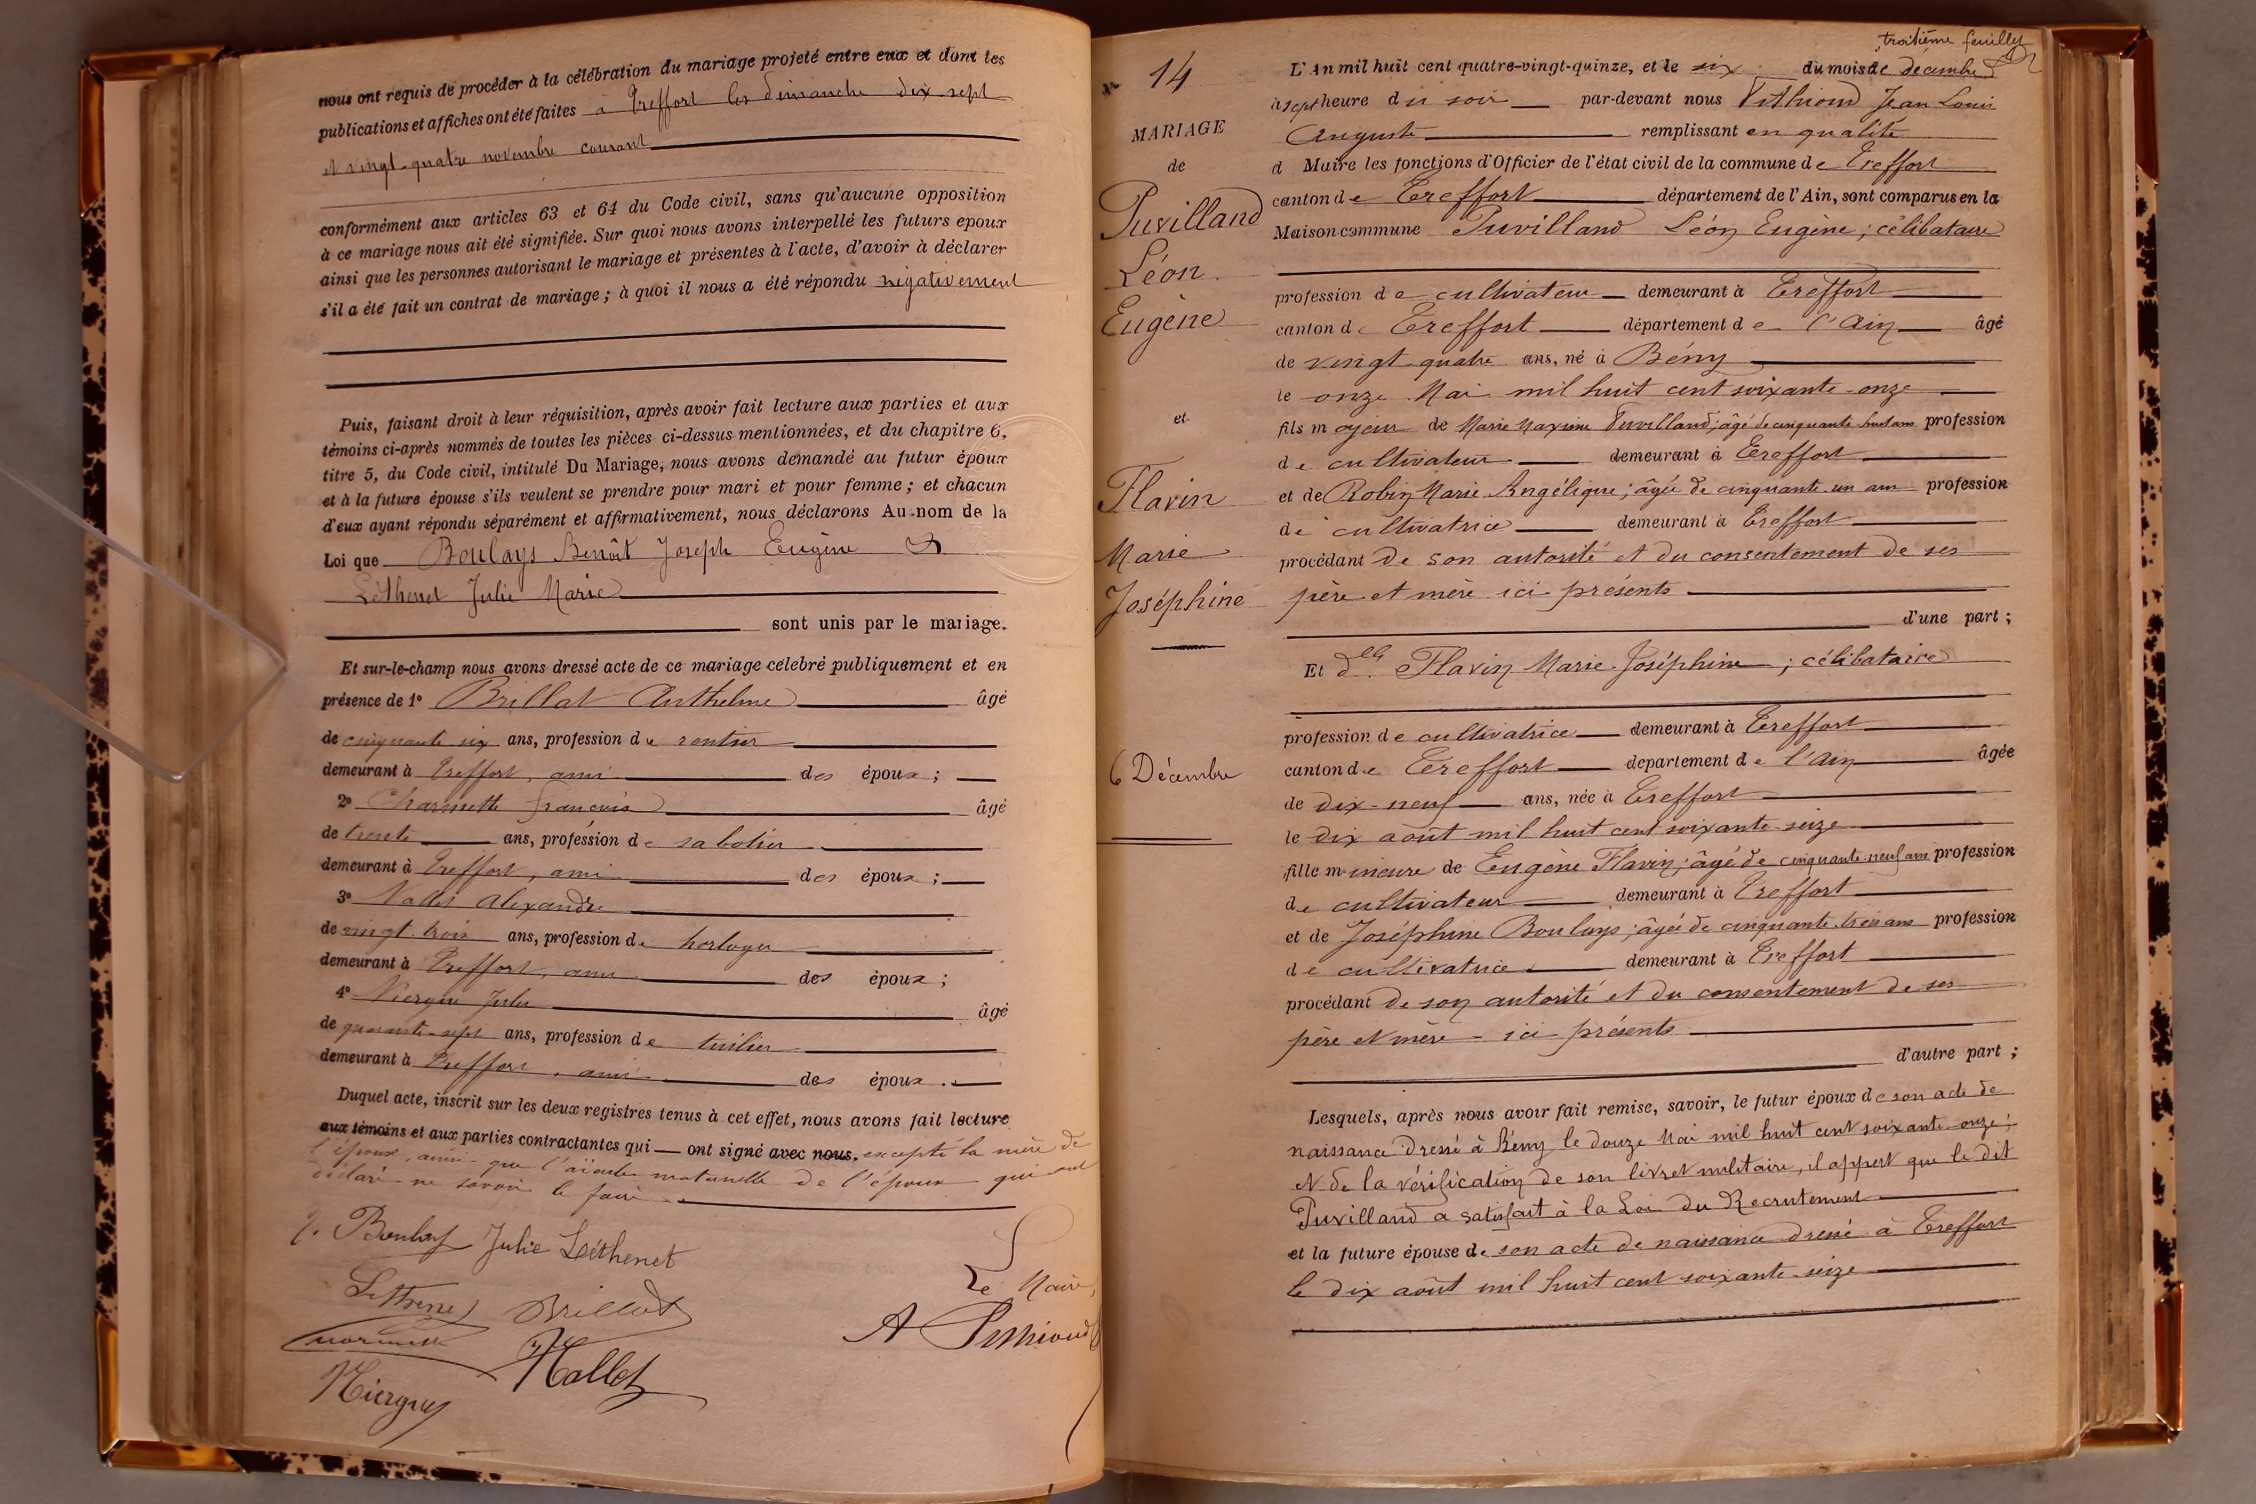 nous ont requis de procéder à la célébration du mariage projeté entre eux et dont les
publications et affiches ont été faites à Treffort les dimanche dix-sept
et vingt-quatre novembre courant
conformément aux articles 63 et 64 du Code civil, sans qu'aucune opposition
à ce mariage nous ait été signifiée. Sur quoi nous avons interpellé les futurs epoux
ainsi que les personnes autorisant le mariage et présentes à l'acte, d'avoir à déclarer
s'il a été fait un contrat de mariage ; à quoi il nous a été répondu négativement
Puis, faisant droit à leur réquisition, après avoir fait lecture aux parties et aux
témoins ci-après nommés de toutes les pièces ci-dessus mentionnées, et du chapitre 6,
titre 5, du Code civil, intitulé Du Mariage, nous avons demandé au futur époux
et à la future épouse s'ils veulent se prendre pour mari et pour femme ; et chacun
d'eux ayant répondu séparément et affirmativement, nous déclarons Au nom de la
Loi que Boulays Benoît Joseph Eugène &
Léthenet Julie Marie
sont unis par le mariage.
Et sur-le-champ nous avons dressé acte de ce mariage célébré publiquement et en
présence de 1° Brillat Anthelme âgé
de cinquante six ans, profession de rentier
demeurant à Treffort, ami des époux ;
2° Charnette François âgé
de trente ans, profession de sabotier
demeurant à Treffort, ami des époux ;
3° Nallet Alexandre
de vingt-trois ans, profession de horloger
demeurant à Treffort, ami des époux ;
4° Niergue Jules âgé
de quarante-sept ans, profession de tuilier
demeurant à Treffort, ami des époux.
Duquel acte, inscrit sur les deux registres tenus à cet effet, nous avons fait lecture
aux témoins et aux parties contractantes qui ont signé avec nous, excepté la mère de
l'époux, ainsi que l'aïeule maternelle de l'époux qui ont
déclaré ne savoir le faire.
Boulay Julie Léthenet
Brillat
Le Maire,
A Puthioud
Nallet
Niergue
troisième feuillet
N° 14
MARIAGE
de
Puvilland
Léon
Eugène
et
Flavin
Marie
Joséphine
6 Décembre
L'An mil huit cent quatre-vingt-quinze, et le six du mois de décembre
à sept heure du soir par-devant nous Puthioud Jean Louis
Auguste remplissant en qualité
d Maire les fonctions d'Officier de l'état civil de la commune de Treffort
canton de Treffort département de l'Ain, sont comparus en la
Maison commune Puvilland Léon Eugène ; célibataire
profession de cultivateur demeurant à Treffort
canton de Treffort département de l'Ain âgé
de vingt-quatre ans, né à Bény
le onze Mai mil huit cent soixante-onze
fils majeur de Marie Maxime Puvilland ; âgé de cinquante-huit ans profession
de cultivateur demeurant à Treffort
et de Robin Marie Angélique ; âgée de cinquante-un ans profession
de cultivatrice demeurant à Treffort
procédant de son autorité et du consentement de ses
père et mère ici présents
d'une part ;
Et dlle Flavin Marie Joséphine ; célibataire
profession de cultivatrice demeurant à Treffort
canton de Treffort departement de l'Ain âgée
de dix-neuf ans, née à Treffort
le dix août mil huit cent soixante-seize
fille mineure de Eugène Flavin ; âgé de cinquante-neuf ans profession
de cultivateur demeurant à Treffort
et de Joséphine Boulays ; âgée de cinquante-trois ans profession
de cultivatrice demeurant à Treffort
procédant de son autorité et du consentement de ses
père et mère ici présents
d'autre part ;
Lesquels, après nous avoir fait remise, savoir, le futur époux de son acte de
naissance dressé à Bény le douze Mai mil huit cent soixante-onze ;
et de la vérification de son livret militaire, il appert que le dit
Puvilland a satisfait à la Loi du Recrutement
et la future épouse de son acte de naissance dressé à Treffort
le dix août mil huit cent soixante-seize